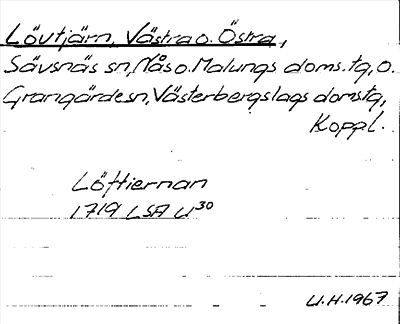 Lövtjärn, Västra o. Östra,
Sävsnäs sn, Nås o. Malungs doms. tg, o.
Grangärde sn, Västerbergslags domstg,
Koppl.
Löftiernan
1719 LSA U³⁰
U.H. 1967